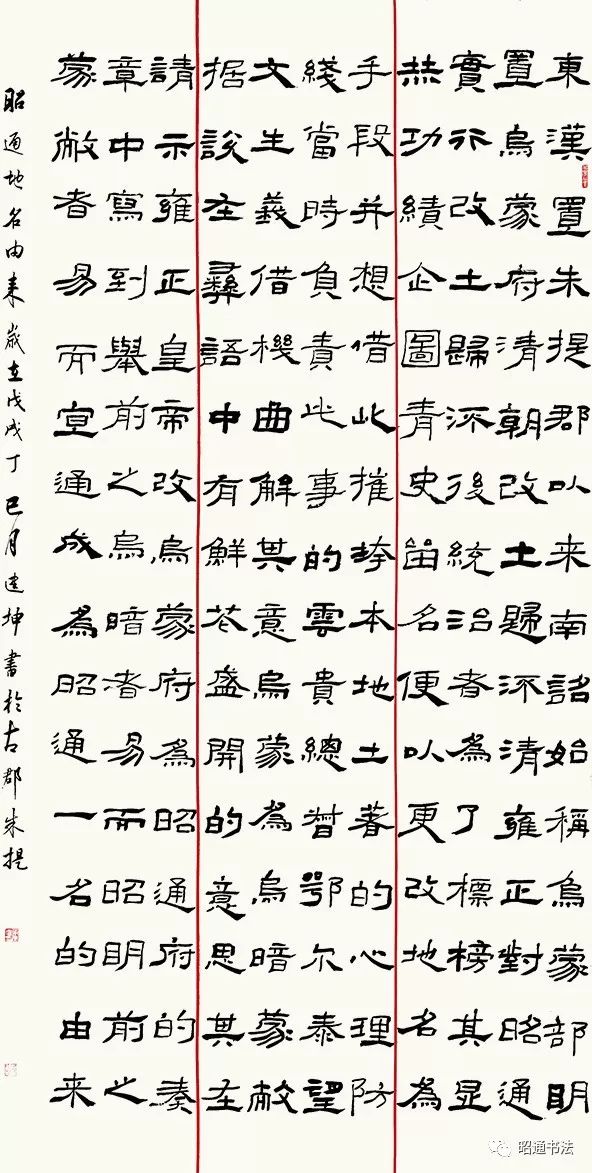 東漢置朱提郡以来南詔始稱烏蒙部明
置烏蒙府清朝改土歸流清雍正對昭通
實行改土歸流後統治者為了標榜其显
赫功績企圖青史留名便以更改地名為
手段并想借此摧垮本地土著的心理防
綫當時負責此事的雲貴總督鄂尔泰望
文生義借機曲解其意烏蒙為烏暗蒙敝
据說在彝語中有鮮花盛開的意思其在
請示雍正皇帝改烏蒙府為昭通府的奏
章中寫到舉前之烏暗者易而昭明前之
蒙敝者易而宣通成為昭通一名的由来
昭通地名由来歲在戊戌丁巳月坤書於古郡朱提
昭通书法